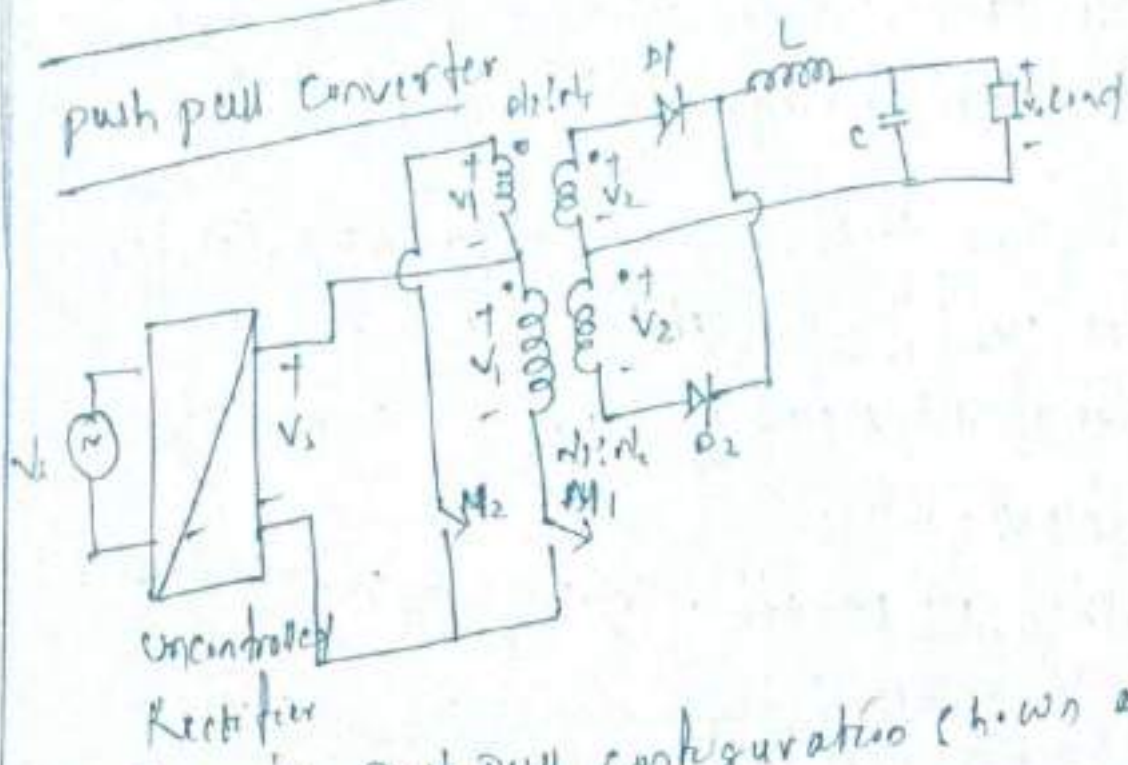 push pull Converter
D1
L
N1:N2
+
V1
-
+
V2
-
C
+
Vo
Load
-
+
V1
-
+
V2
-
+
Vs
-
M2
M1
D2
uncontrolled
Rectifier
push pull configuration shown